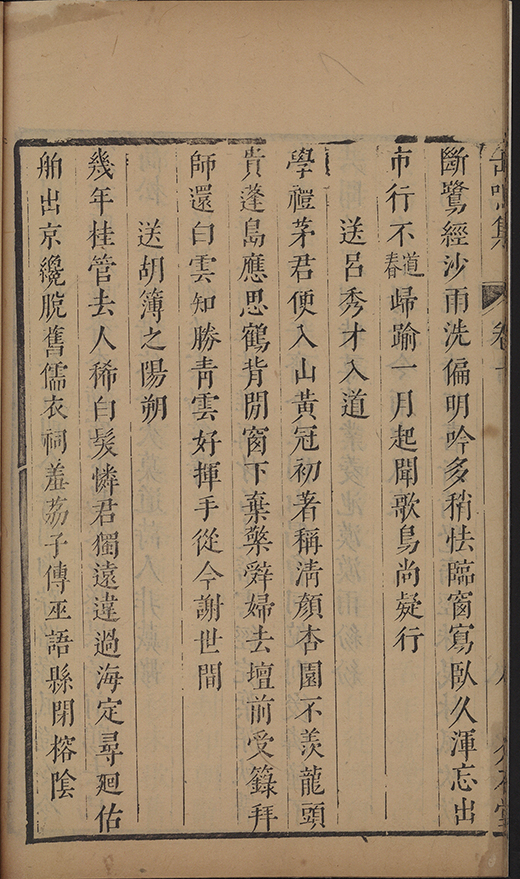 缶鳴集 卷十
斷鷺經沙雨洗偏明吟多稍怯臨窗寫臥久渾忘出
市行不道春歸踰一月起聞歌鳥尚疑行
送呂秀才入道
學禮茅君便入山黃冠初著稱清顏杏園不羨龍頭
貴蓬島應思鶴背閒窗下棄檠辤婦去壇前受籙拜
師還白雲知勝靑雲好揮手從今謝世間
送胡簿之陽朔
幾年桂管去人稀白髮憐君獨遠違過海定尋廻估
舶出京纔脫舊儒衣祠羞荔子傳巫語縣閉榕陰